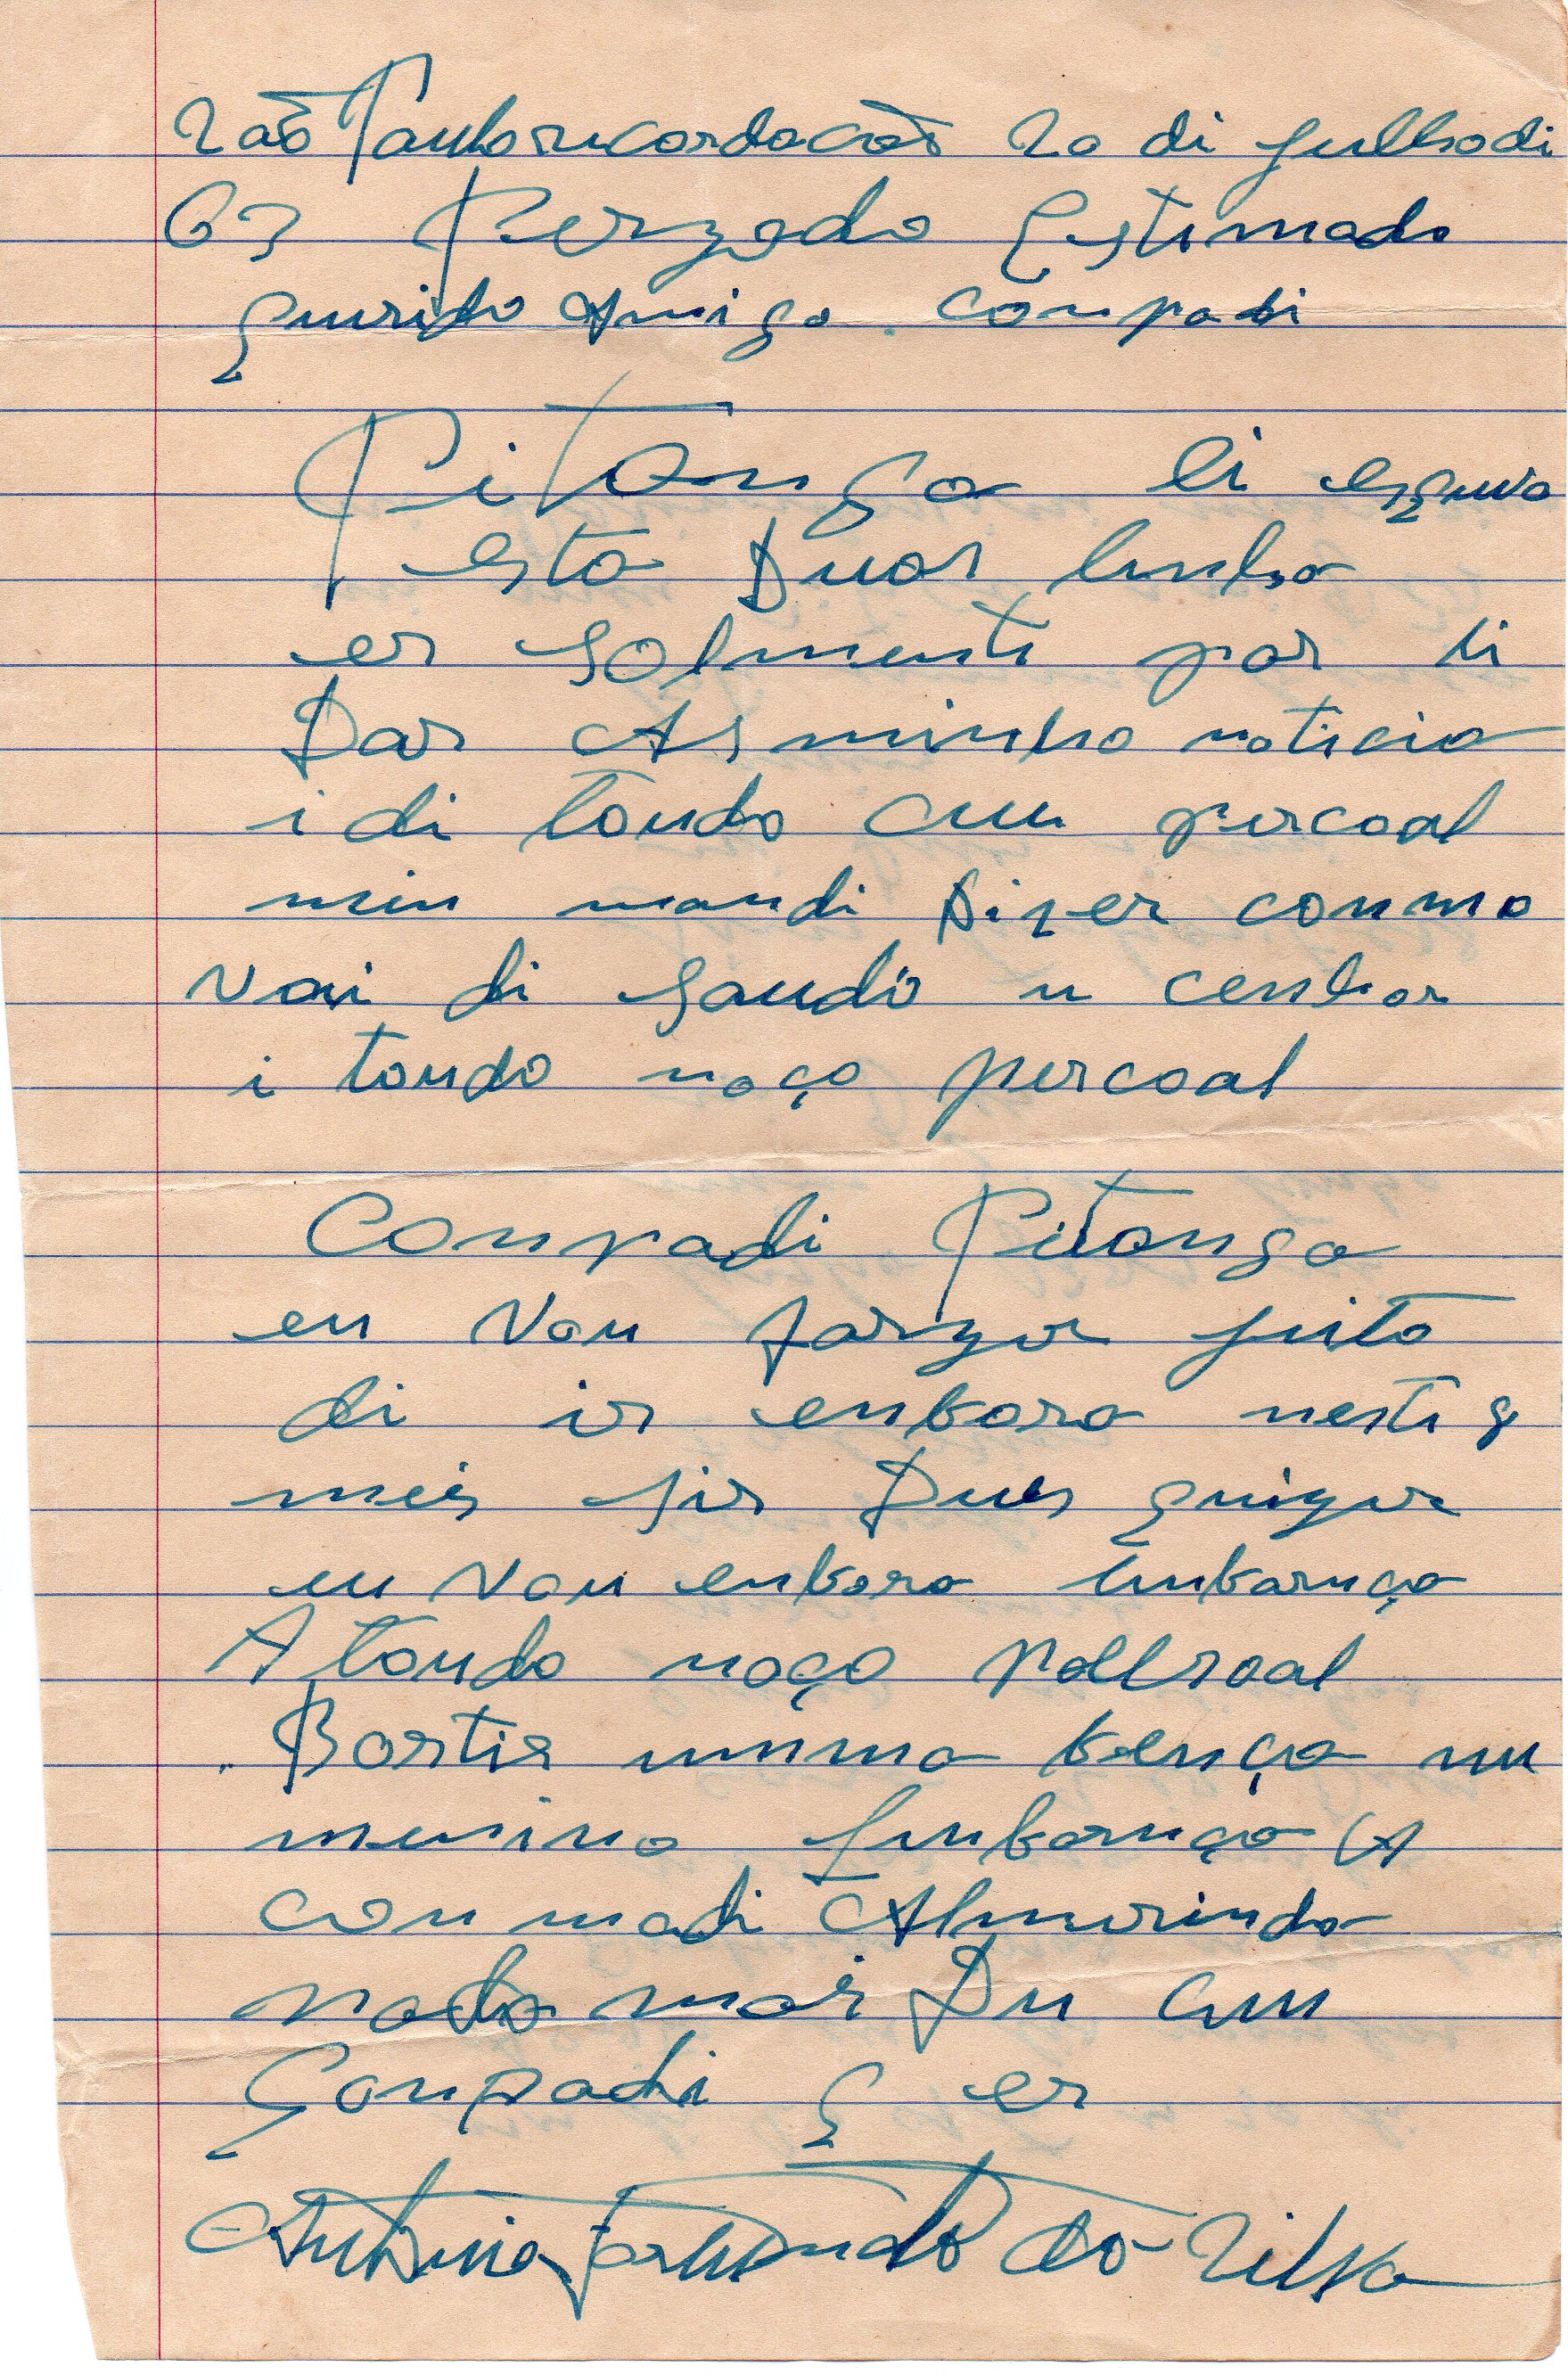 São Paulo ricordacoẽs 20 di Julho di
63 Perzado Estimado
Qurido Amigo. compadi
Pitanga li esquvo
esta Duas linha
er Solmenti par li
Dar As minha noticia
i di toudo cuu percoal
min mandi Dizer conmo
vai di Saudi u cenhor
i toudo noço percoal
Compadi Pitanga
eu vou farzer geito
di ir enbora nesti
meis sir Dues quizer
eu vou enbora lenbarnça
A toudo noço
Bortis unma bença nu
menino lenbarnça A
conmadi Almerinda
nada mai Du cuu
Conpadi Q er
Antonio Fernando da Silva